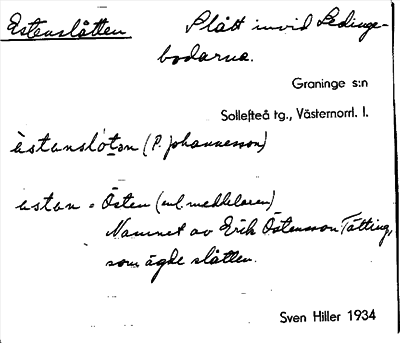 Estenslåtten Slått invid Ledinge-
bodarna.
Graninge s:n
Sollefteå tg., Västernorrl. l.
èstanslòtan (P. Johannesson)
estan = Östen (enl. meddelaren)
Namnet av Erik Östensson Tätting,
som ägde slåtten.
Sven Hiller 1934